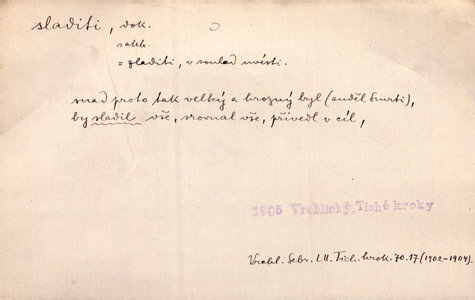 sladiti, dok.
zakk.
= sladiti, v soulad uvésti.
snad proto tak velký a hrozný byl (anděl smrti),
by sladil vše, srovnal vše, přivedl v cíl,
1905 Vrchlický, Tiché kroky
Vrchl. Sebr. LII. Tich. krok. 70. 17 (1902-1904).